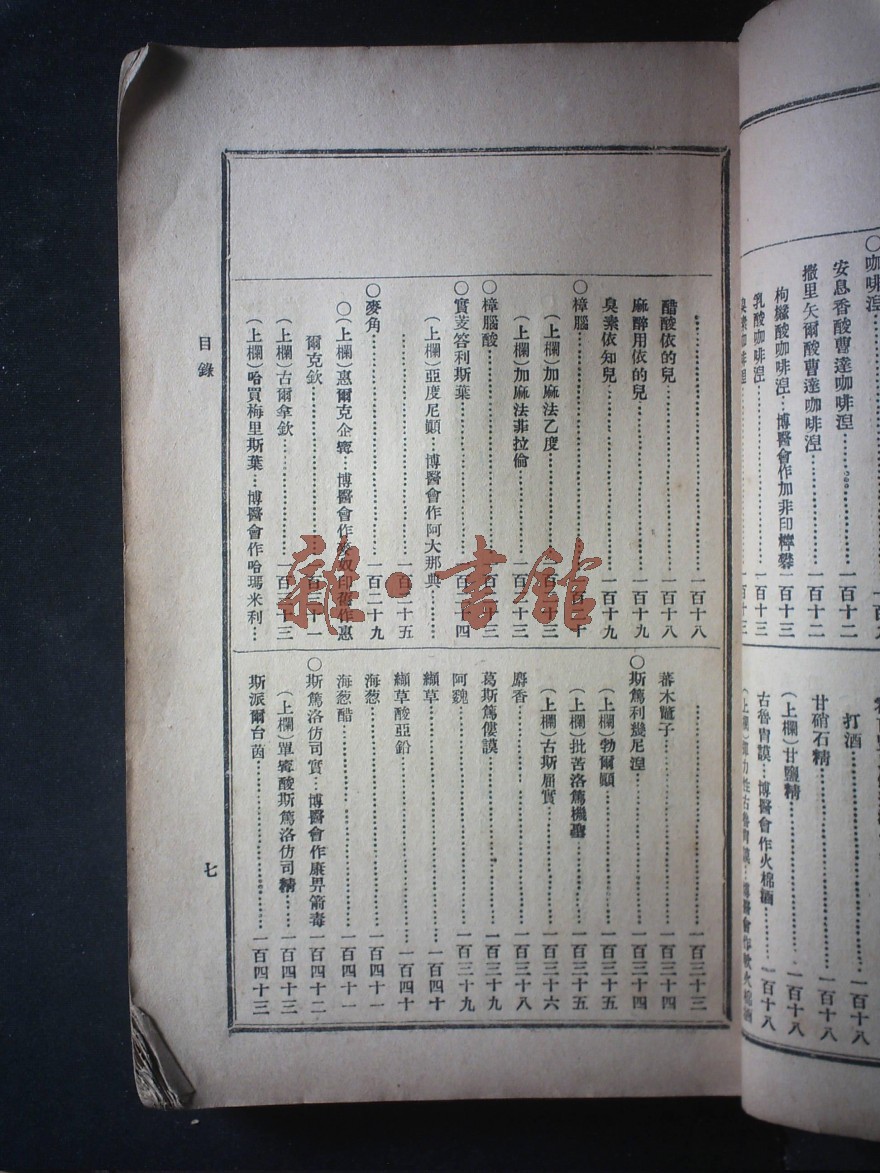 ○咖啡涅
安息香酸曹達咖啡涅……一百十二
撒里矢爾酸曹達咖啡涅……一百十二
枸櫞酸咖啡涅…博醫會作加非印檸礬……一百十三
乳酸咖啡涅……一百十三
臭素咖啡涅……一百十三
打酒……一百十八
甘硝石精……一百十八
(上欄)甘鹽精……一百十八
古魯胄謨…博醫會作火棉酒……一百十八
……一百十八
醋酸依的兒……一百十八
麻醉用依的兒……一百十九
臭素依知兒……一百十九
○樟腦……一百二十
(上欄)加麻法乙度……一百二十三
(上欄)加麻法非拉倫……一百二十三
○樟腦酸……一百二十三
○實芰答利斯葉……一百二十四
(上欄)亞度尼顚…博醫會作阿大那典……
……一百二十五
○麥角……一百二十九
○(上欄)惠爾克企尊…博醫會作
爾克欽……一百三十一
(上欄)古爾拿欽……一百三十三
(上欄)哈買梅里斯葉…博醫會作哈瑪米利…
……一百三十三
蕃木鼈子……一百三十四
○斯篤利幾尼涅……一百三十四
(上欄)勃爾顚……一百三十五
(上欄)批苦洛篤機……一百三十五
(上欄)古斯屈實……一百三十六
麝香……一百三十八
葛斯篤僂謨……一百三十九
阿魏……一百三十九
纈草……一百四十
纈草酸亞鉛……一百四十
海葱……一百四十一
海葱酷……一百四十一
○斯篤洛仿司實…博醫會作康畀箭毒……一百四十二
(上欄)單寧酸斯篤洛仿司精……一百四十三
斯派爾台茵……一百四十三
目錄
七
雜·書館